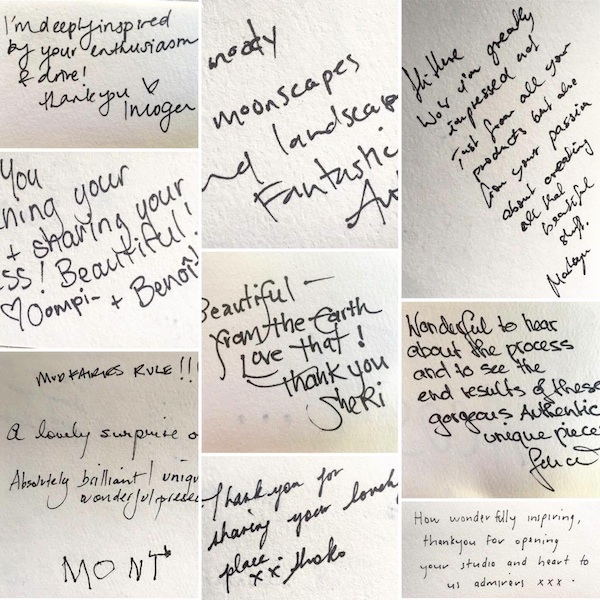 I'm deeply inspired
by your enthusiasm
& drive!
Thank you
Imogen
You
ning your
+ sharing your
ss! Beautiful!
Oompi- + Benoî
MUDFAIRIES RULE!!!
A lovely surprise o
Absolutely brilliant! uniqu
wonderful prese
MONT
moody
moonscapes
nd landscap
Fantastic
Beautiful —
from the Earth
Love that!
thank you
SheRi
Thank you for
sharing your lovely
place.
xx
Hi there
Wow i'm greatly
impressed not
Just from all your
products but also
from your passion
about creating
all that
beautiful
stuff.
Wonderful to hear
about the process
and to see the
end results of these
gorgeous Authentic
unique piece
How wonderfully inspiring,
thankyou for opening
your studio and heart to
us admirers xxx.